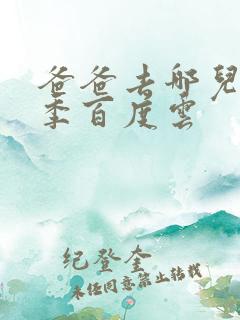 爸爸去哪兒
季百度雲
纪登奎
未经同意禁止转载